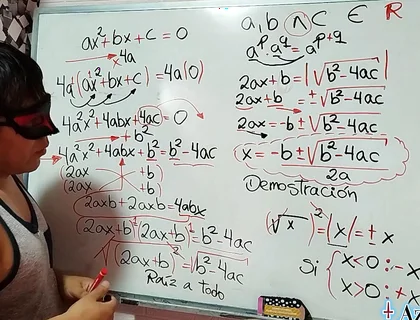 ax² + bx + c = 0
x4a
4a(ax² + bx + c) = 4a(0)
4a²x² + 4abx + 4ac = 0
+ b²
4a²x² + 4abx + b² = b² - 4ac
(2ax + b)
(2ax + b)
2axb + 2axb = 4abx
(2ax + b)¹(2ax + b)¹ = b² - 4ac
√(2ax + b)² = √b² - 4ac
Raiz a todo
a, b ∧ C ∈ R
a^p · a^q = a^(p+q)
2ax + b = |√b² - 4ac|
2ax + b = ±√b² - 4ac
2ax = -b ± √b² - 4ac
x = -b ± √b² - 4ac
2a
Demostración
(√x)² = |x| = ± x
Si { x < 0 : - x
x > 0 : + x